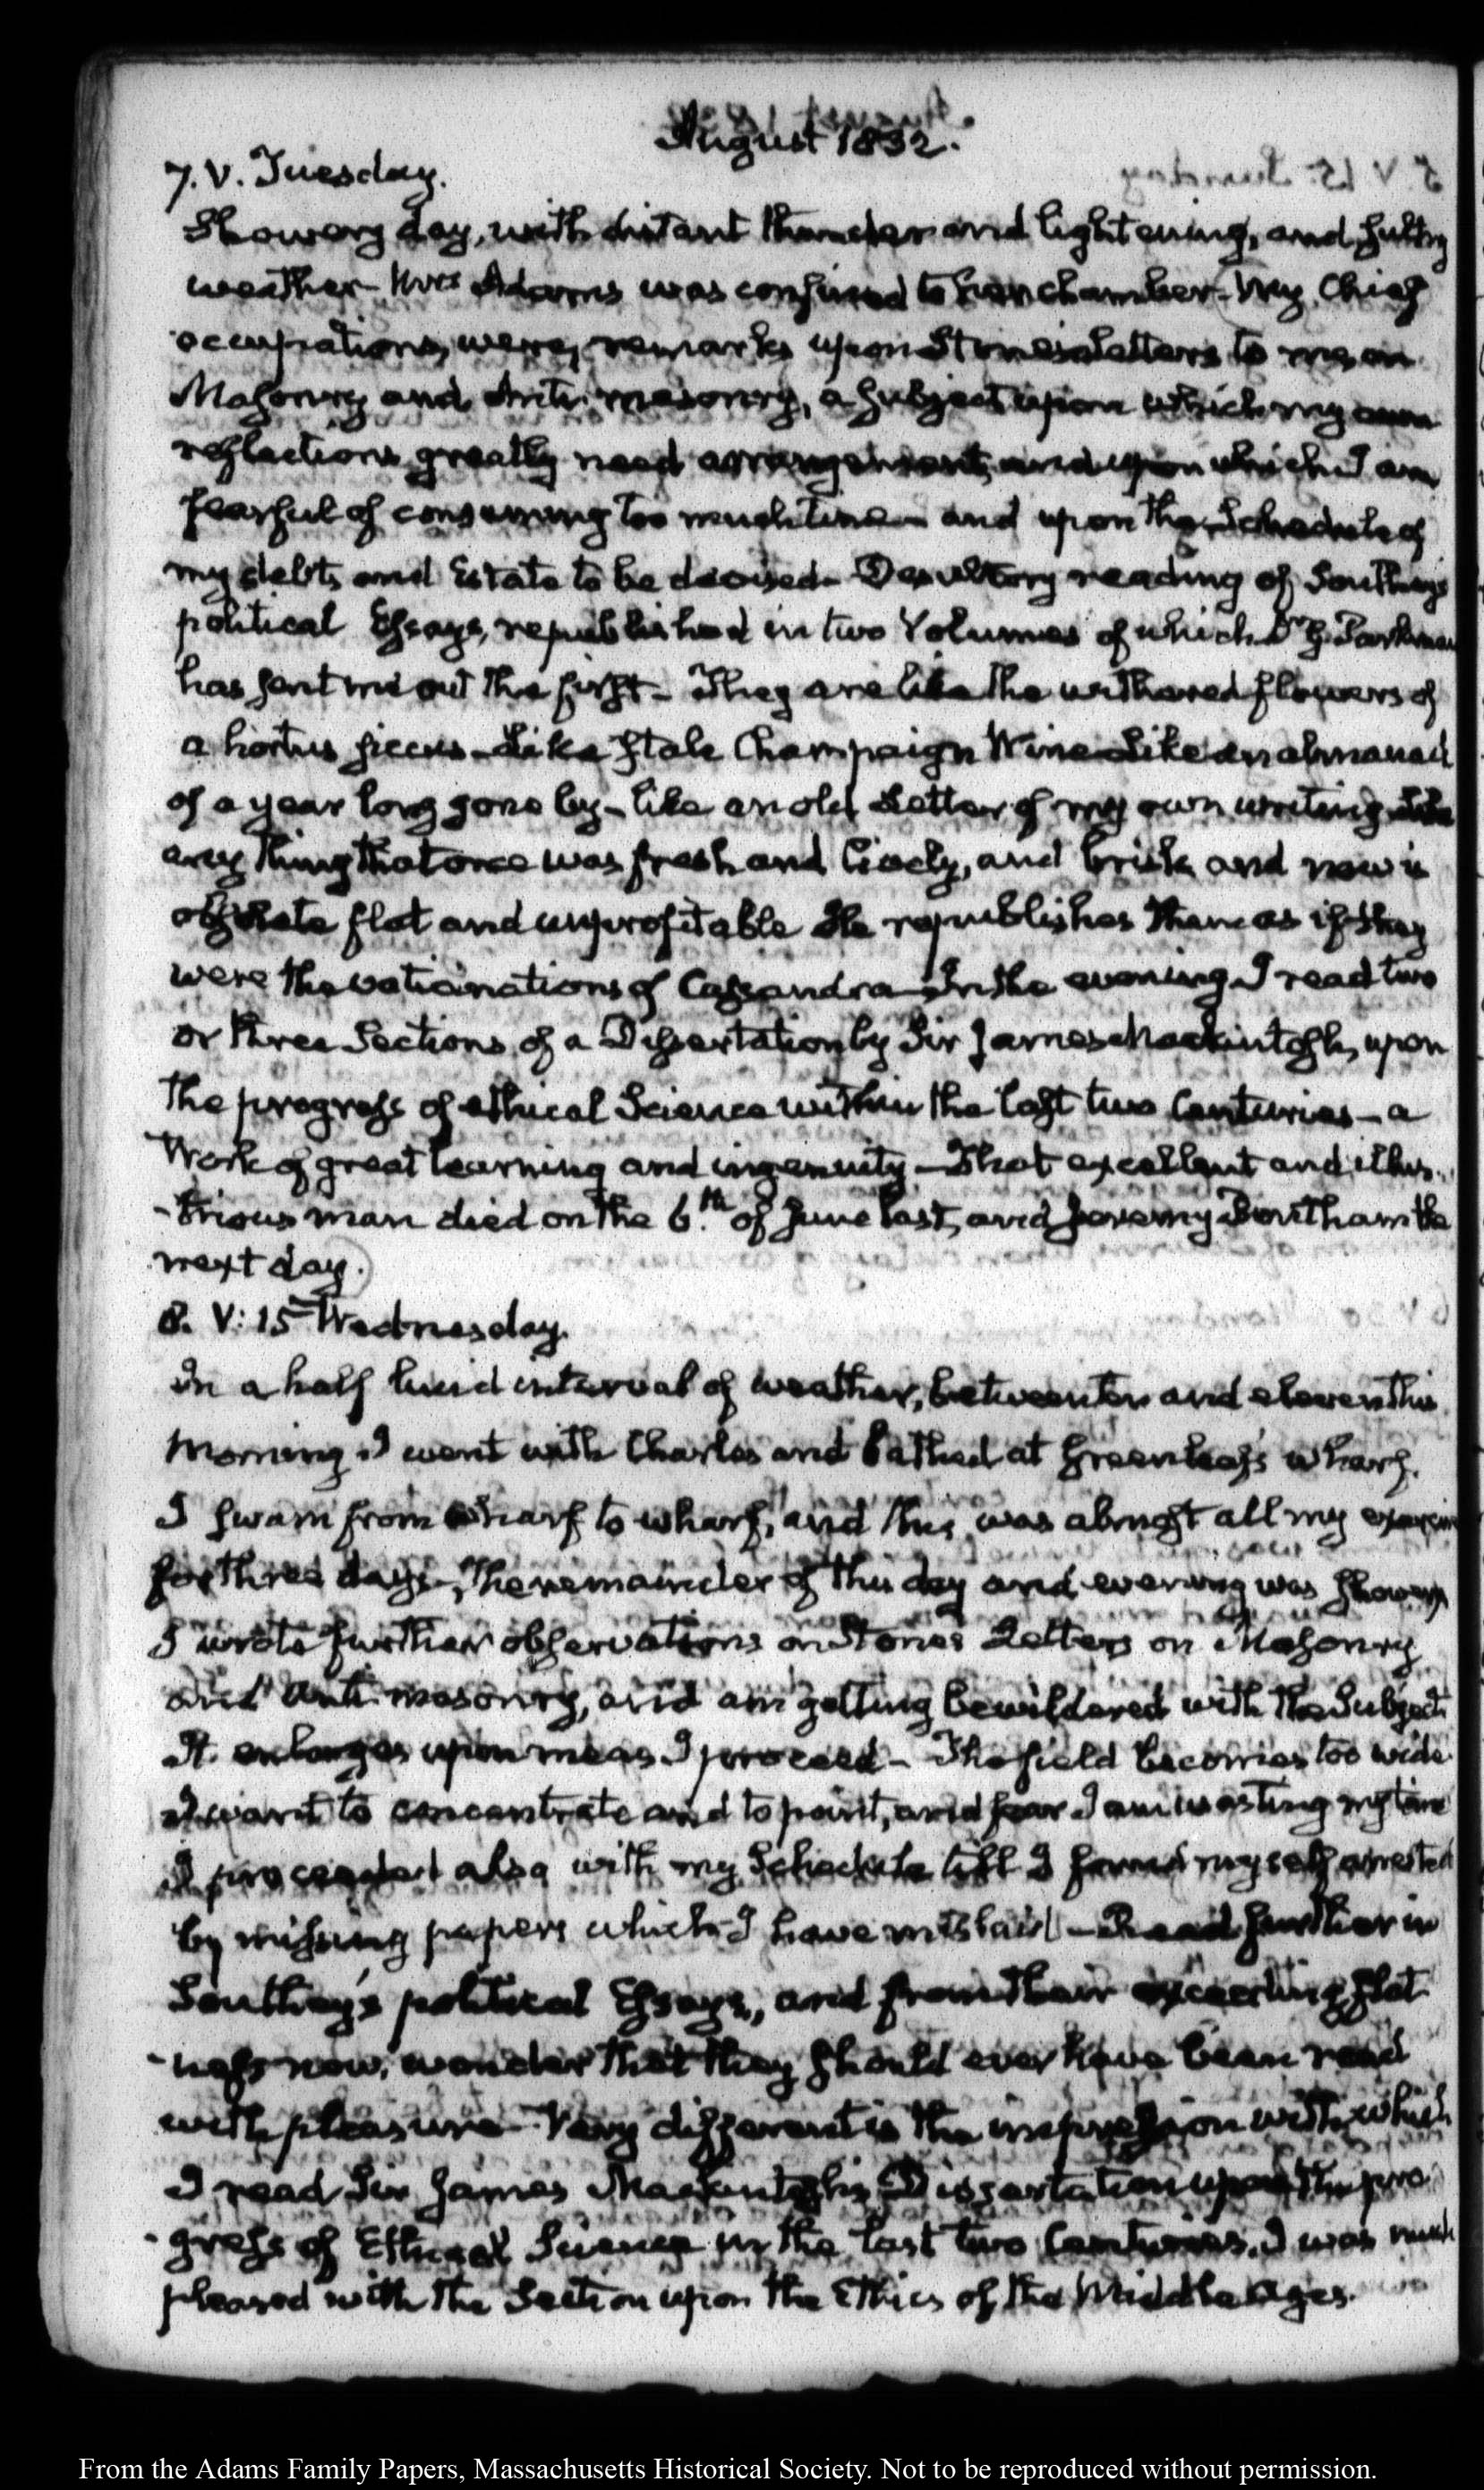 August 1832.
7. V. Tuesday.
Showery day, with distant thunder and lightening, and sultry
weather. Mrs Adams was confined to her chamber. My Chief
occupations, were, remarks upon Stone's Letters to me on
Masonry and Anti-masonry, a subject upon which my own
reflections greatly need arrangement, and upon which I am
fearful of consuming too much time— and upon the Schedule of
my debts and Estate to be devised— Desultory reading of Southey's
political Essays, republished in two Volumes of which Dr G. Parkman
has sent me out the first— They are like the withered flowers of
a hortus siccus—Like stale Champaign Wine—Like an almanack
of a year long gone by— like an old Letter of my own writing—like
any thing that once was fresh and lively, and brisk and now is
obsolete flat and unprofitable He republishes them as if they
were the vaticinations of Cassandra—In the evening I read two
or three Sections of a Dissertation by Sir James Mackintosh, upon
the progress of ethical Science within the last two Centuries— a
Work of great learning and ingenuity—That excellent and illus-
-trious man died on the 6th of June last, and Jeremy Bentham the
next day.
8. V: 15 Wednesday.
In a half lucid interval of weather, between ten and eleven this
Morning I went with Charles and bathed at Greenleaf's wharf.
I swam from wharf to wharf, and this was almost all my exercise
for three days—The remainder of this day and evening was showery
I wrote further observations on Stone's Letters on Masonry
and Anti-masonry, and am getting bewildered with the Subject
It enlarges upon me as I proceed— The field becomes too wide
I want to concentrate and to point, and fear I am wasting my time
I proceeded also with my Schedule till I found myself arrested
by missing papers which I have mislaid—Read further in
Southey's political Essays, and from their exceeding flat-
-ness now, wonder that they should ever have been read
with pleasure—Very different is the impression with which
I read Sir James Mackintosh's Dissertation upon the pro-
-gress of Ethical Science in the last two Centuries. I was much
pleased with the Section upon the Ethics of the Middle Ages.
From the Adams Family Papers, Massachusetts Historical Society. Not to be reproduced without permission.